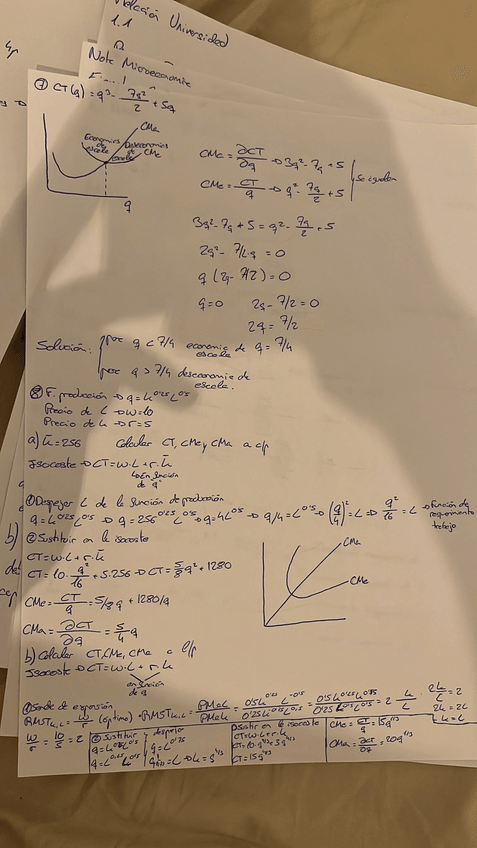 Relación Universidad
1.1
Note Microeconomía
⑦ CT(q) = q³ - 7q²/2 + 5q
CMa
Economías de escala
Deseconomías de escala
CMe
q
CMa = ∂CT/∂q → 3q² - 7q + 5
CMe = CT/q → q² - 7q/2 + 5
Se igualan
3q² - 7q + 5 = q² - 7q/2 + 5
2q² - 7/2q = 0
q (2q - 7/2) = 0
q = 0   2q - 7/2 = 0
2q = 7/2
Solución: para q < 7/4 economía de escala   q = 7/4
para q > 7/4 deseconomía de escala.
⑧ F. producción → q = k^0'25 L^0'5
Precio de L → w = 10
Precio de k → r = 5
a) k̄ = 256   Calcular CT, CMe y CMa a c/p
Isocoste → CT = w·L + r·k̄
en función de q
① Despejar L de la función de producción
q = k^0'25 L^0'5 → q = 256^0'25 L^0'5 → q = 4L^0'5 → q/4 = L^0'5 → (q/4)² = L → q²/16 = L → función de requerimiento trabajo
② Sustituir en la isocoste
CT = w·L + r·k̄
CT = 10·q²/16 + 5·256 → CT = 5/8 q² + 1280
CMe = CT/q = 5/8 q + 1280/q
CMa = ∂CT/∂q = 5/4 q
CMa
CMe
b) Calcular CT, CMe, CMa a l/p
Isocoste → CT = w·L + r·k
en función de q
① Senda de expansión
RMST k,L = w/r (óptimo) → RMST k,L = PMaL/PMak = 0'5k^0'25 L^-0'5 / 0'25k^-0'75 L^0'5 = 2·k/L
2k/L = 2
2k = 2L
k = L
w/r = 10/5 = 2
② Sustituir
despejo
q = k^0'25 L^0'5
q = L^0'25 L^0'5
③ Sustituir en la isocoste
CT = w·L + r·k
CT = 10·q^4/3 + 5q^4/3
CT = 15q^4/3
CMe = CT/q = 15q^1/3
CMa = ∂CT/∂q = 20q^1/3
b)